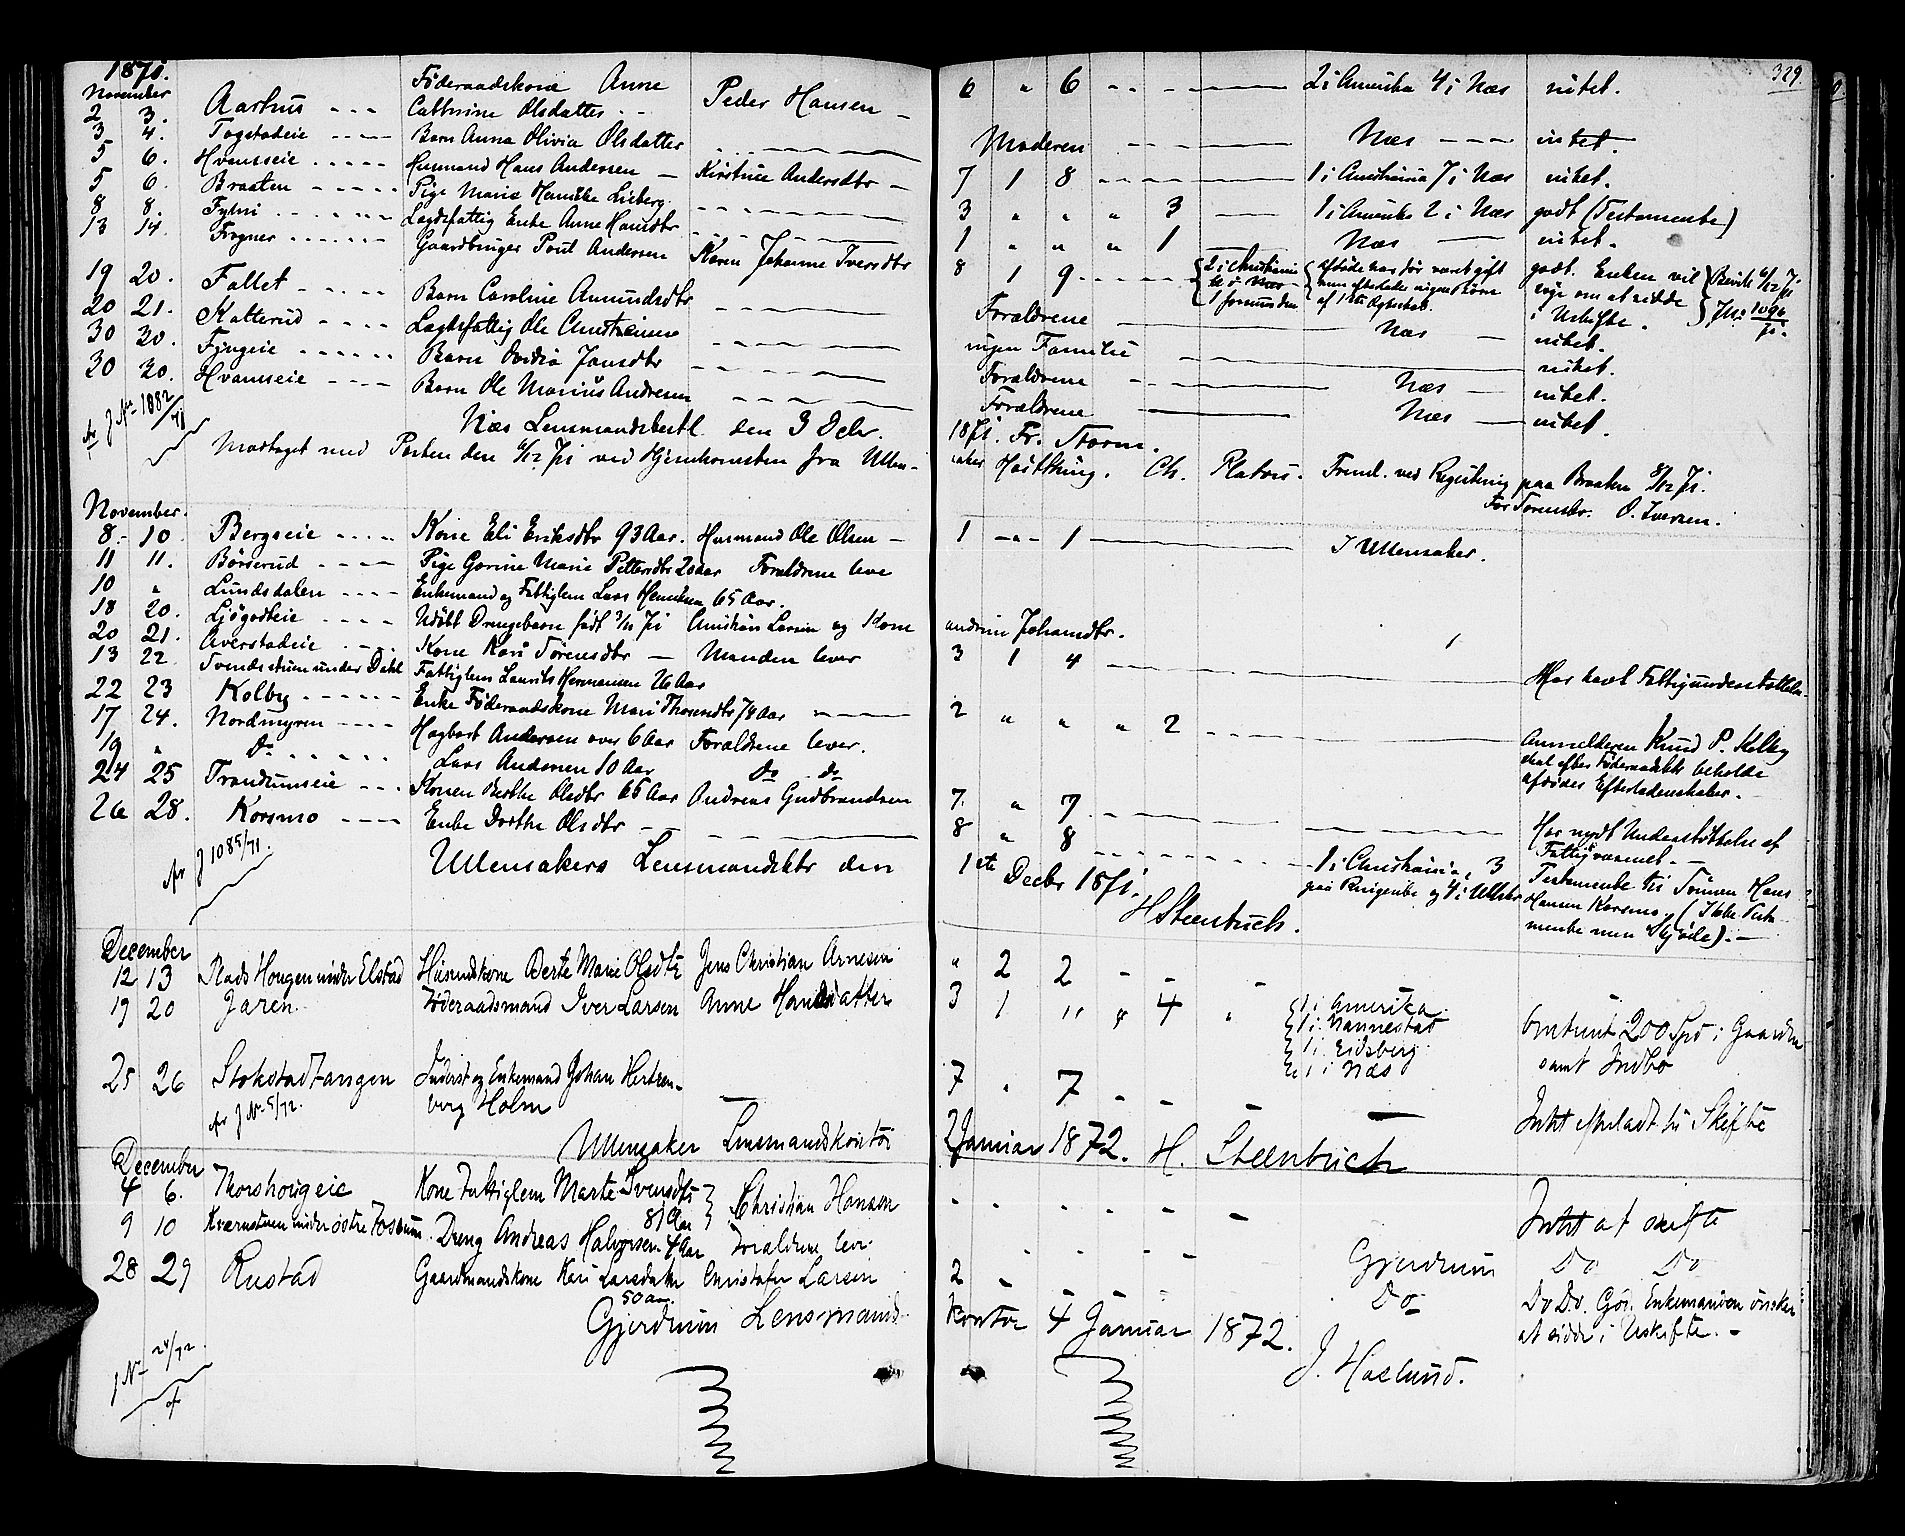 329.
1871.
November
2 3. Aarhus Føderaadskone Anne Cathrine Olsdatter Peder Hansen 6 " 6 2 i Amerika 4 i Næs intet.
3 4. Togstadeie Barn Anna Olivia Olsdatter Moderen Næs intet.
5 6. Hvamseie Husmand Hans Andersen Kirstine Andersdtr 7 1 8 1 i Christiania 7 i Næs intet.
5 6. Braaten Pige Marie Henrikke Lieberg. 3 " " " 3 1 i Amerika 2 i Næs godt (Testamente)
8 8. Lægdsfattig Enke Anne Hansdtr 1 " " " 1 Næs intet.
13 14. Frogner Gaardbruger Poul Andersen Karen Johanne Iversdtr 8 1 9 2 i Christiania 1 forsvunden
Afdøde har før været gift men efterlader ingen Børn af 1ste Ægteskab.
godt. Enken vil søge om at sidde i Uskifte.
19 20. Fallet Barn Caroline Amundsdtr Forældrene Næs intet.
20 21. Katterud Lægdsfattig Ole Christensen ingen Familie intet.
30 30. Barn Jansdtr Forældrene Næs intet.
30 30. Hvamseie Barn Ole Marius Andersen Forældrene Næs intet.
Næs Lensmandsbestl. den 3 Dcbr. 1871. Fr. Storm.
1082/71
Modtaget med Posten den 6/12 71 ved Hjemkomsten fra Ullensaker Høstthing. Ch. Platou. Freml. ved Registering paa Braaten 8/12 71.
For Sorenskr. O. Iversen.
November.
8. 10. Bergseie Kone Eli Eriksdtr 93 Aar. Husmand Ole Olsen 1 " 1 I Ullensaker.
11 11. Børserud Pige Gorine Marie Pettersdtr 20 aar Forældrene leve
10 " Lundsdalen Enkemand og Fattiglem Lars Henriksen 65 Aar.
18 20. Ljøgodteie Udøbt Drengebarn født 3/11 71 Christian Larsen og Kone Andrine Johansdtr.
20 21. Averstadeie Kone Kari Sørensdtr Manden lever 3 1 4
13 22 under Dahl Fattiglem Laurits Hermansen 26 Aar Har havt Fattigunderstøttelse
22 23 Kolby Enke Føderaadskone Mari Thoresdtr 78 Aar 2 " " " 2
Anmelderen Knud P. Kolby skal efter Føderaadsbr. beholde afdødes Efterladenskaber.
17 24. Nordmyren Hagbart Andersen over 6 Aar Forældrene lever.
19 " Do Lars Andersen 10 Aar Do Do
24 25 Trandumseie Konen Berthe Olsdtr 66 Aar Andreas Gudbrandsen 7. " 7 Har nydt Understøttelse af Fattigvæsenet.
26 28. Korsmo Enke Dorthe Olsdtr 8 " 8 1 i Christiania, 3 paa Ringerike og 4 i Ullsker
Testamente til Sønnen Hans Hansen Korsmo (Ikke Testamente men Skjøde).
J 1085/71.
Ullensakers Lensmandsktr den 1ste Decbr 1871.
H Steenbuch.
December
12 13 Plads Hougen under Elstad Huusmdskone Berte Marie Olsdtr Jens Christian Arnesen " 2 2
19 20 Jaren Føderaadsmand Iver Larsen Anne Hansdatter 3 1 " " 4 "
1 i Amerika
1 i Nannestad
1 i Eidsberg
1 i Næs
Omtrent 200 Spd i Gaarden samt Indbo
25 26 Stokstadtangen Inderst og Enkemand Johan Hertzenberg Holm 7 " 7 Intet efterladt til Skifte
J No 5/72.
Ullensaker Lensmandskontor 2 Januar 1872. H. Steenbuch
December
4 6. Thorshougeie Kone Fattiglem Marte Svendsdtr 81 Aar Christian Hansen Intet at skifte
9 10 Kværnstuen under østre Fossum. Dreng Andreas Halvorsen 4 Aar Forældrene lever Gjerdrum Do Do
28 29 Rustad Gaardmandskone Kari Larsdatter 50 aar Christofer Larsen 2 Do Do Do. Enkemanden ønsker at sidde i Uskifte.
Gjerdrum Lensmandskontor 4 Januar 1872.
J. Haslund.
J No 24/72.